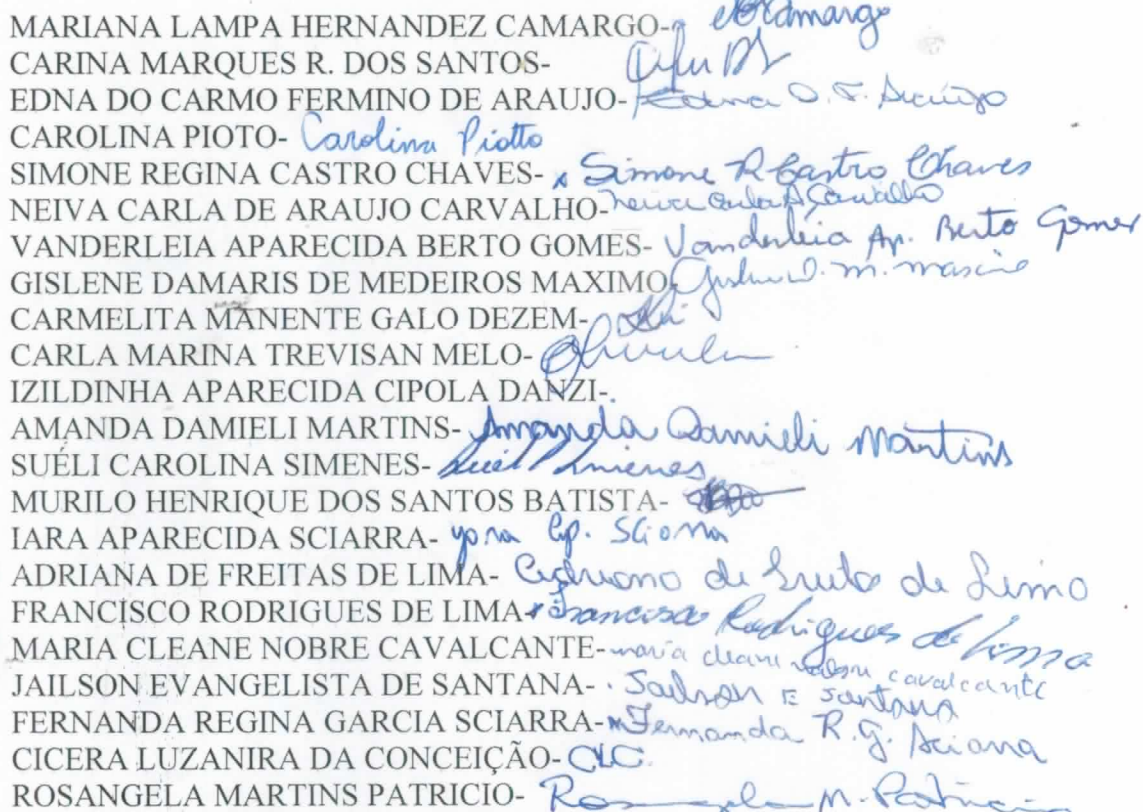 MARIANA LAMPA HERNANDEZ CAMARGO- Camargo
CARINA MARQUES R. DOS SANTOS-
EDNA DO CARMO FERMINO DE ARAUJO- Edna D. F. Araujo
CAROLINA PIOTO- Carolina Piotto
SIMONE REGINA CASTRO CHAVES- x Simone R Castro Chaves
NEIVA CARLA DE ARAUJO CARVALHO- Neiva Carla A Carvalho
VANDERLEIA APARECIDA BERTO GOMES- Vanderleia Ap. Berto Gomes
GISLENE DAMARIS DE MEDEIROS MAXIMO
CARMELITA MANENTE GALO DEZEM-
CARLA MARINA TREVISAN MELO-
IZILDINHA APARECIDA CIPOLA DANZI-.
AMANDA DAMIELI MARTINS- Amanda Damieli Martins
SUÉLI CAROLINA SIMENES-
MURILO HENRIQUE DOS SANTOS BATISTA-
IARA APARECIDA SCIARRA- yara Ap. Sciarra
ADRIANA DE FREITAS DE LIMA- Adriana de de Lima
FRANCISCO RODRIGUES DE LIMA- x Francisco Rodrigues de Lima
MARIA CLEANE NOBRE CAVALCANTE- maria cleane cavalcante
JAILSON EVANGELISTA DE SANTANA- Jailson E Santana
FERNANDA REGINA GARCIA SCIARRA- Fernanda R. G. Sciarra
CICERA LUZANIRA DA CONCEIÇÃO- CLC
ROSANGELA MARTINS PATRICIO- Rosangela M. Patricio